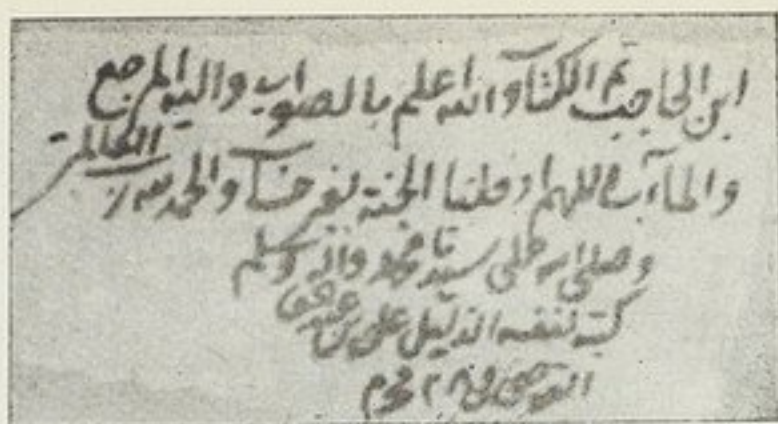 ابن الحاجب تم الكتاب والله اعلم بالصواب واليه المرجع
والمآب اللهم ادخلنا الجنة بغير حساب والحمد لله رب العالمين
وصلى الله على سيدنا محمد واله وسلم
كتبه لنفسه الذليل على بن
في ٢٨ محرم